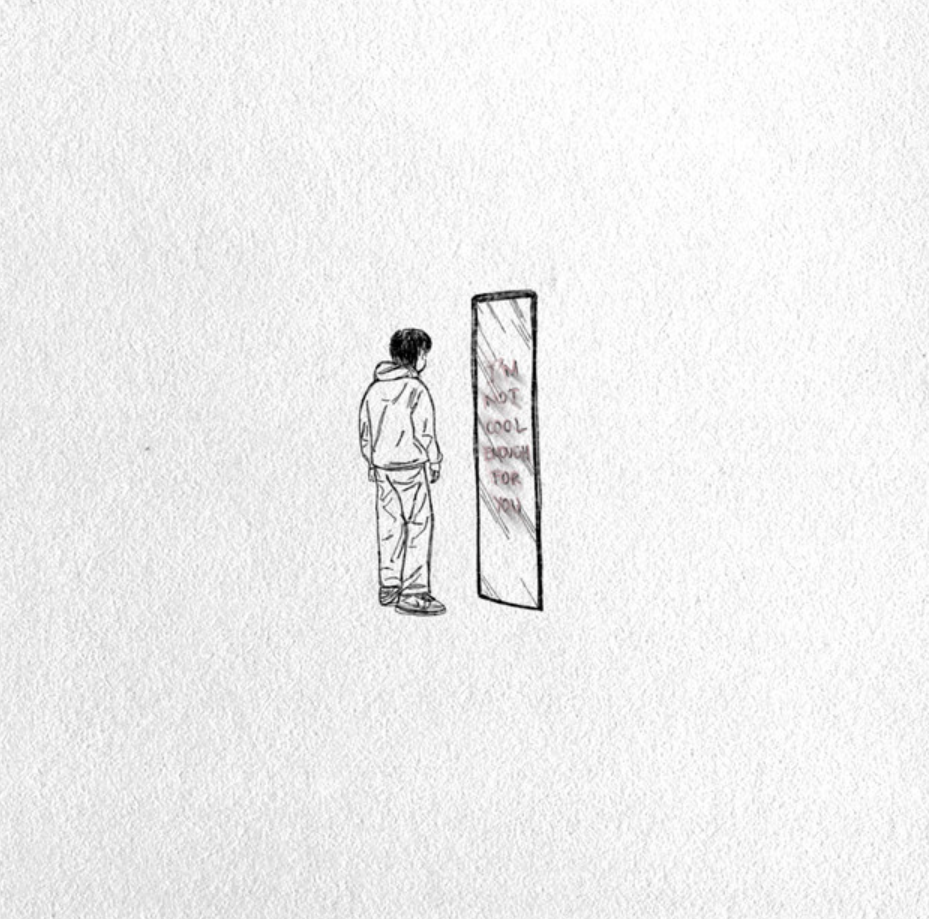 I'M
NOT
COOL
ENOUGH
FOR
YOU